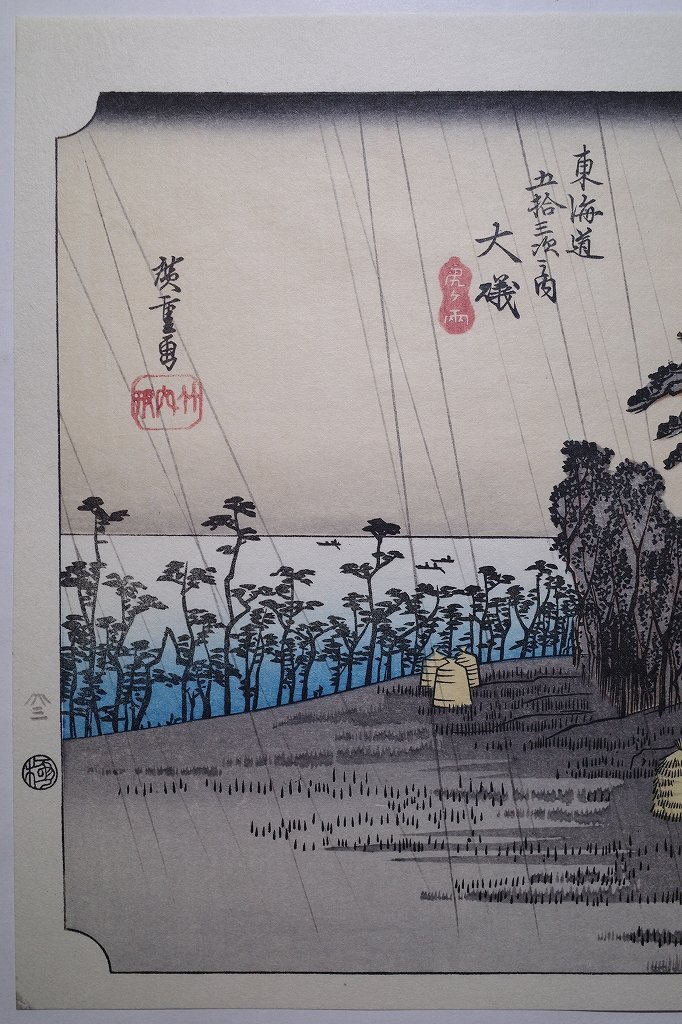 東海道
五拾三次之内
大磯
虎ヶ雨
廣重画
竹内
極